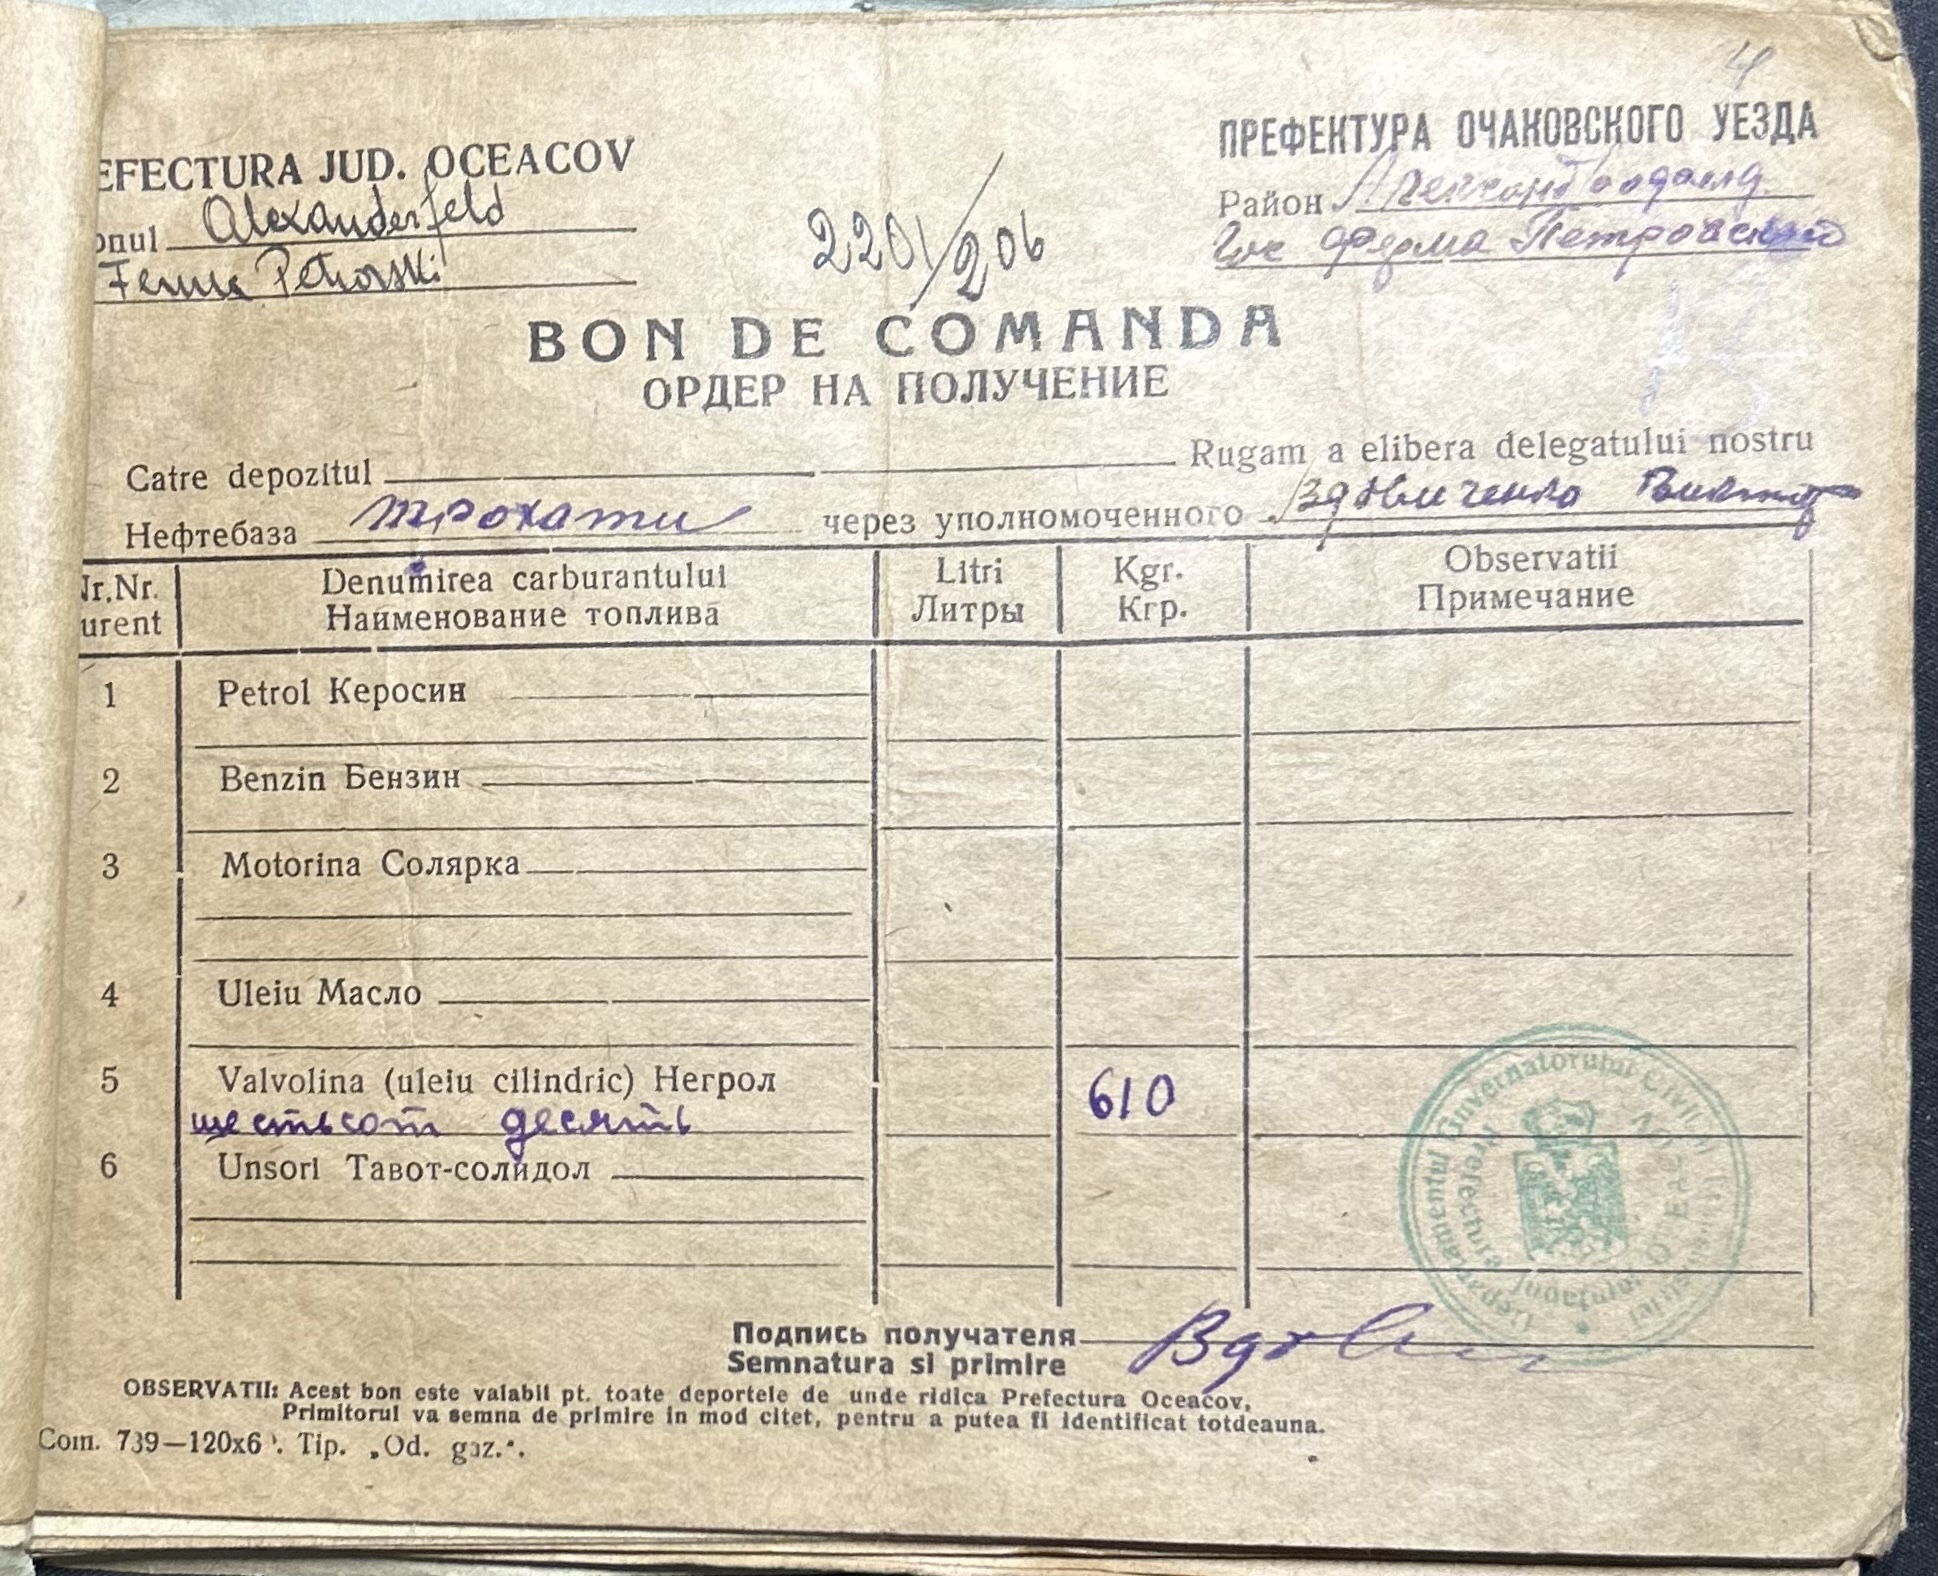 4
EFECTURA JUD. OCEACOV
onul Alexanderfeld
Ferma Petrovski
2201/206
ПРЕФЕКТУРА ОЧАКОВСКОГО УЕЗДА
Район
Ферма Петровский
BON DE COMANDA
ОРДЕР НА ПОЛУЧЕНИЕ
Catre depozitul Rugam a elibera delegatului nostru
Нефтебаза Трохати через уполномоченного
Nr.Nr. Denumirea carburantului Litri Kgr. Observatii
urent Наименование топлива Литры Кгр. Примечание
1 Petrol Керосин
2 Benzin Бензин
3 Motorina Солярка
4 Uleiu Масло
5 Valvolina (uleiu cilindric) Негрол 610
шестьсот десять
6 Unsori Тавот-солидол
Departamentul Guvernatorului Civil al
Prefectura Județului OCEACOV
Подпись получателя
Semnatura si primire
OBSERVATII: Acest bon este valabil pt. toate deportele de unde ridica Prefectura Oceacov,
Primitorul va semna de primire in mod citet, pentru a putea fi identificat totdeauna.
Com. 739—120x6 . Tip. „Od. gaz.".